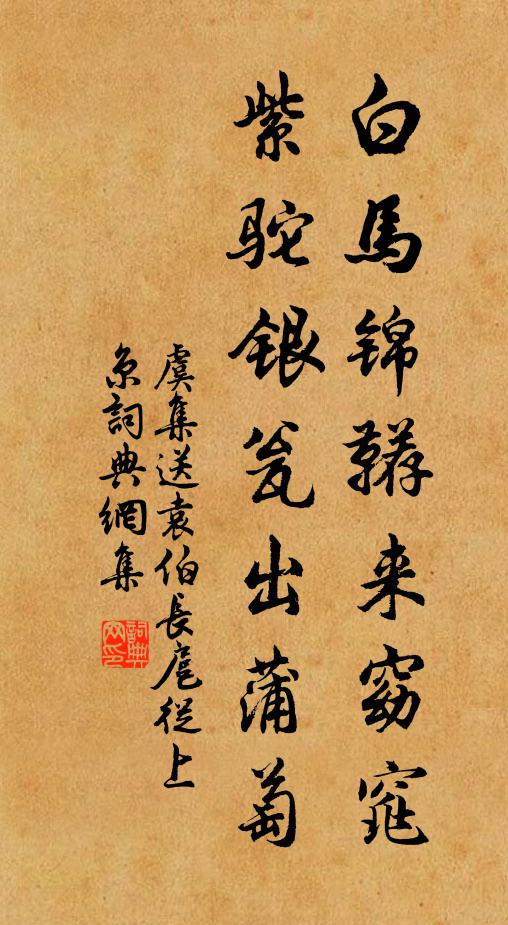 白馬锦韉来窈窕
紫駝银瓮出蒲萄
虞集送袁伯長扈從上
京詞典網集
詞典
网印